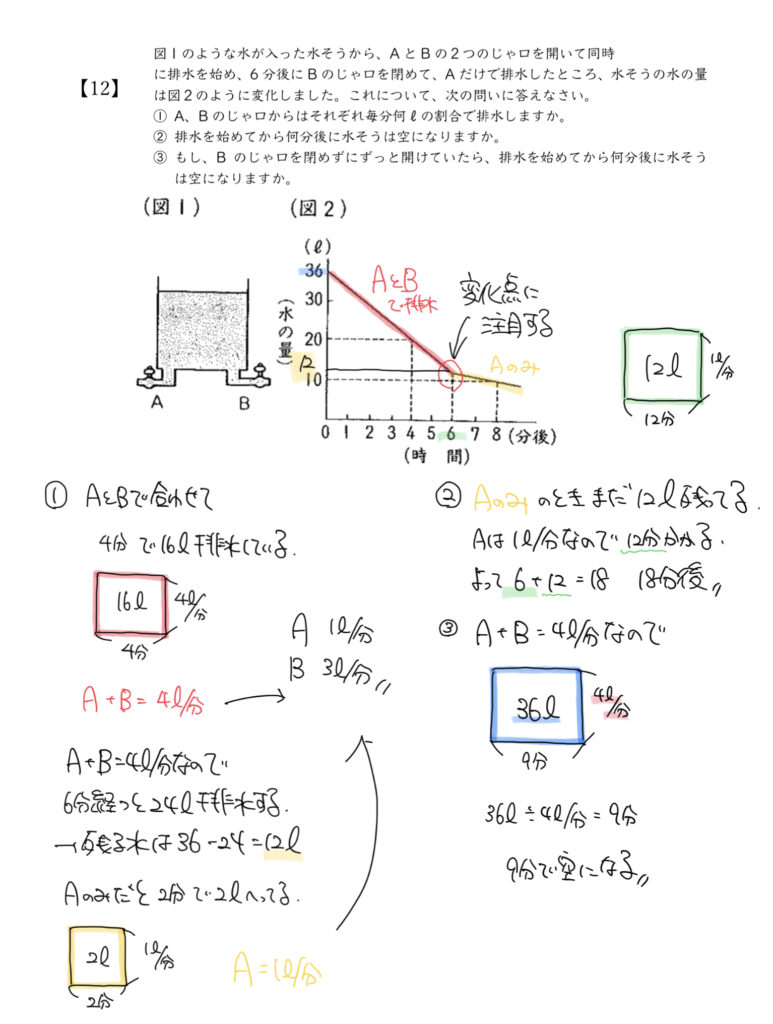 【12】
図1のような水が入った水そうから、AとBの2つのじゃ口を開いて同時
に排水を始め、6分後にBのじゃ口を閉めて、Aだけで排水したところ、水そうの水の量
は図2のように変化しました。これについて、次の問いに答えなさい。
① A、Bのじゃ口からはそれぞれ毎分何ℓの割合で排水しますか。
② 排水を始めてから何分後に水そうは空になりますか。
③ もし、B のじゃ口を閉めずにずっと開けていたら、排水を始めてから何分後に水そう
は空になりますか。
(図1)
(図2)
A
B
(ℓ)
36
30
20
12
10
(水の量)
0 1 2 3 4 5 6 7 8 (分後)
(時 間)
AとB
で排水
変化点に
注目する
Aのみ
12ℓ
1ℓ/分
12分
① AとBで合わせて
4分で16ℓ排水している.
16ℓ
4ℓ/分
4分
A+B=4ℓ/分
A 1ℓ/分
B 3ℓ/分〃
A+B=4ℓ/分なので
6分経つと24ℓ排水する.
→残る水は36-24=12ℓ
Aのみだと2分で2ℓへってる.
2ℓ
1ℓ/分
2分
A=1ℓ/分
② Aのみのときまだ12ℓ残ってる.
Aは1ℓ/分なので12分かかる.
よって6+12=18 18分後〃
③ A+B=4ℓ/分なので
36ℓ
4ℓ/分
9分
36ℓ÷4ℓ/分=9分
9分で空になる〃